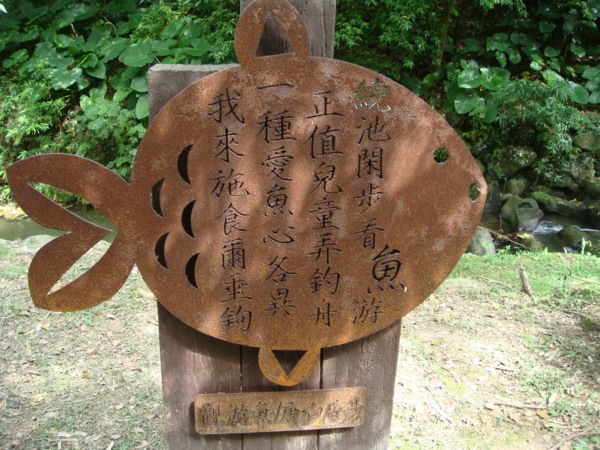 繞池閑步看魚游
正值兒童弄釣舟
一種愛魚心各異
我來施食爾垂鉤
觀游魚/唐白居易